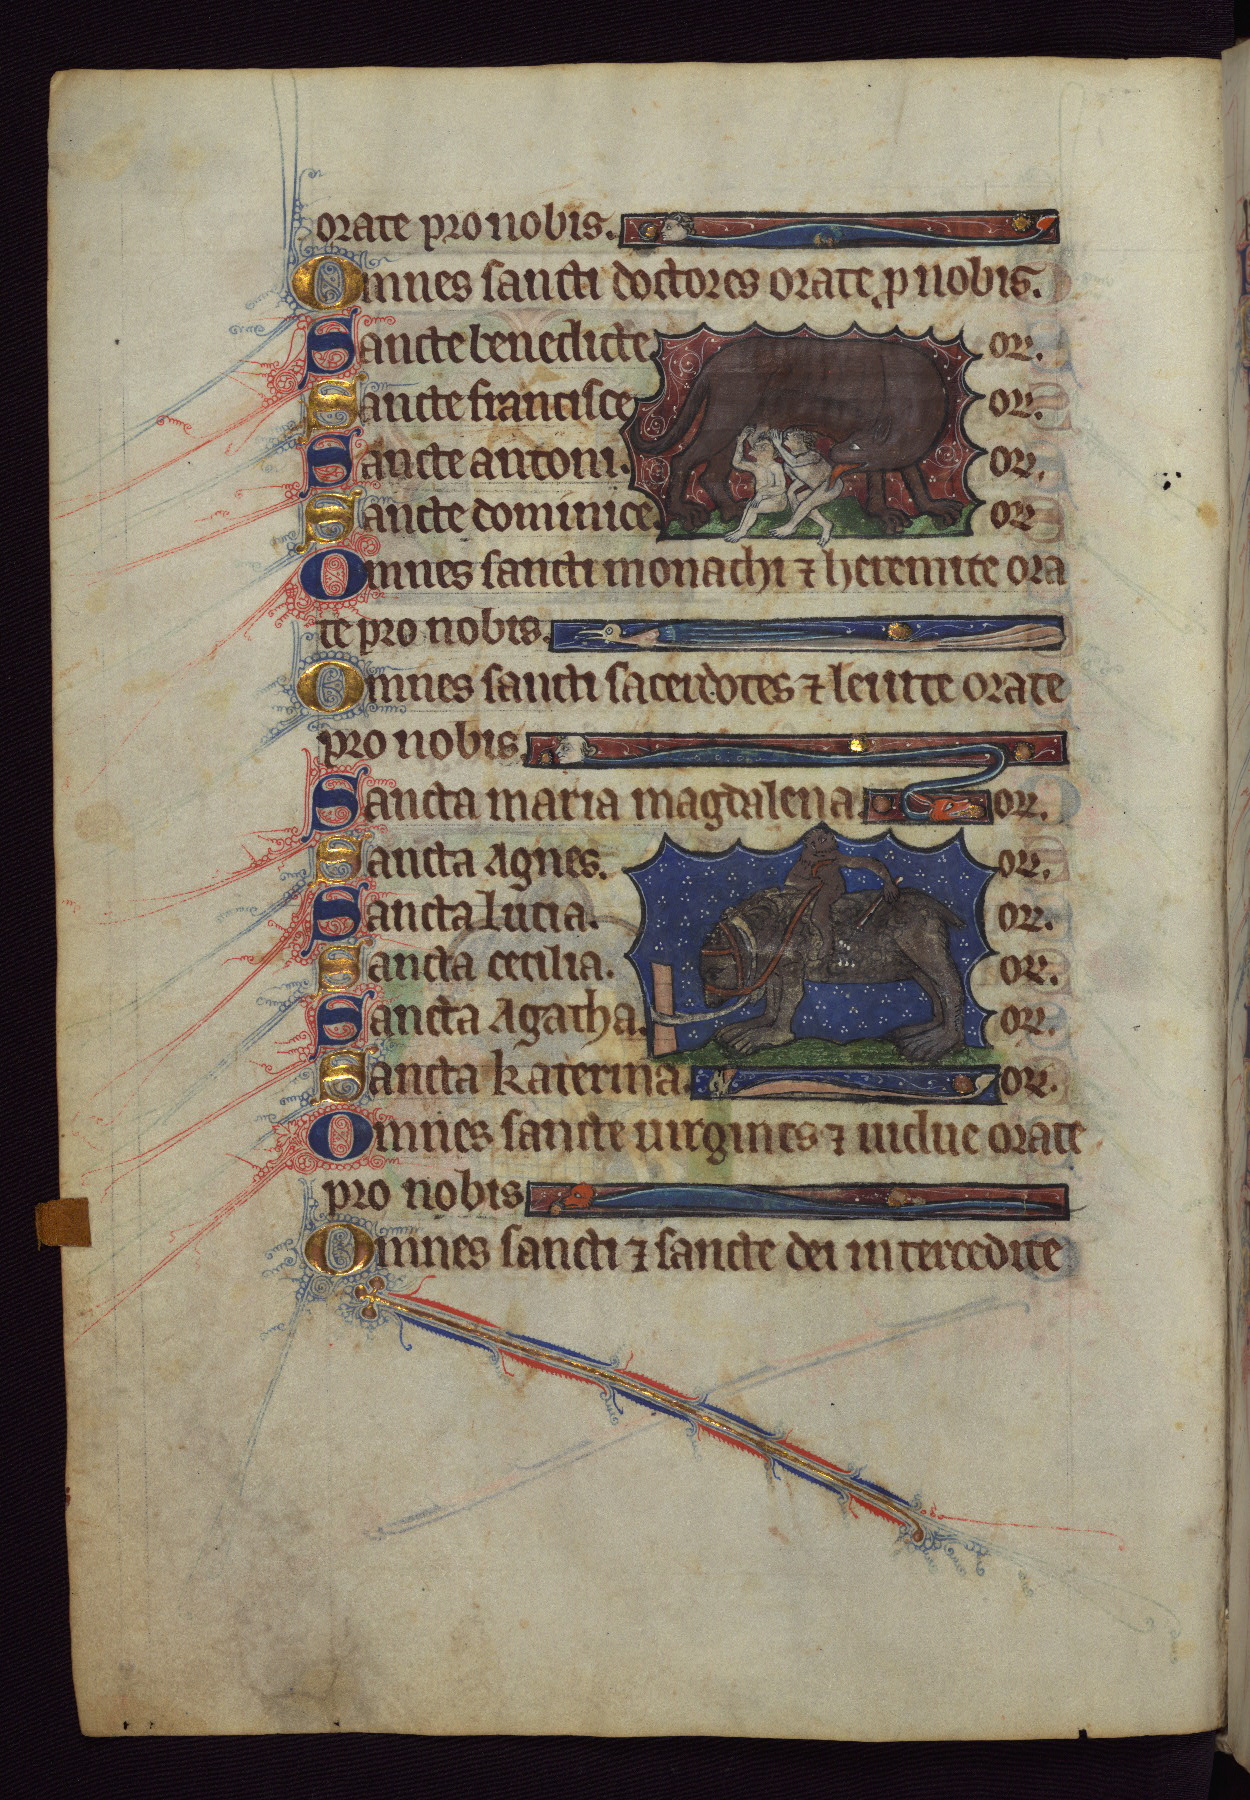 orate pro nobis.
Omnes sancti doctores orate p nobis.
Sancte benedicte or.
Sancte francisce or.
Sancte antoni. or.
Sancte dominice. or
Omnes sancti monachi ⁊ heremite ora
te pro nobis.
Omnes sancti sacerdotes ⁊ leuite orate
pro nobis.
Sancta maria magdalena. or.
Sancta Agnes. or.
Sancta lucia. or.
Sancta cecilia. or.
Sancta Agatha. or.
Sancta katerina. or.
Omnes sancte uirgines ⁊ uidue orate
pro nobis
Omnes sancti ⁊ sancte dei intercedite